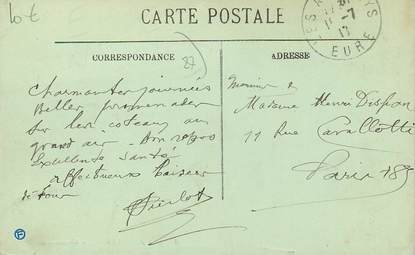 10 €
CARTE POSTALE
CORRESPONDANCE
ADRESSE
87
11 -7
17
EURE
Charmantes journées
Belles promenades
sur les coteaux au
grand air. Bon repos
Excellente santé
affectueux baisers
de tous
Pierlot
Monsieur &
Madame Henri
11 Rue Cavallotti
Paris 18e